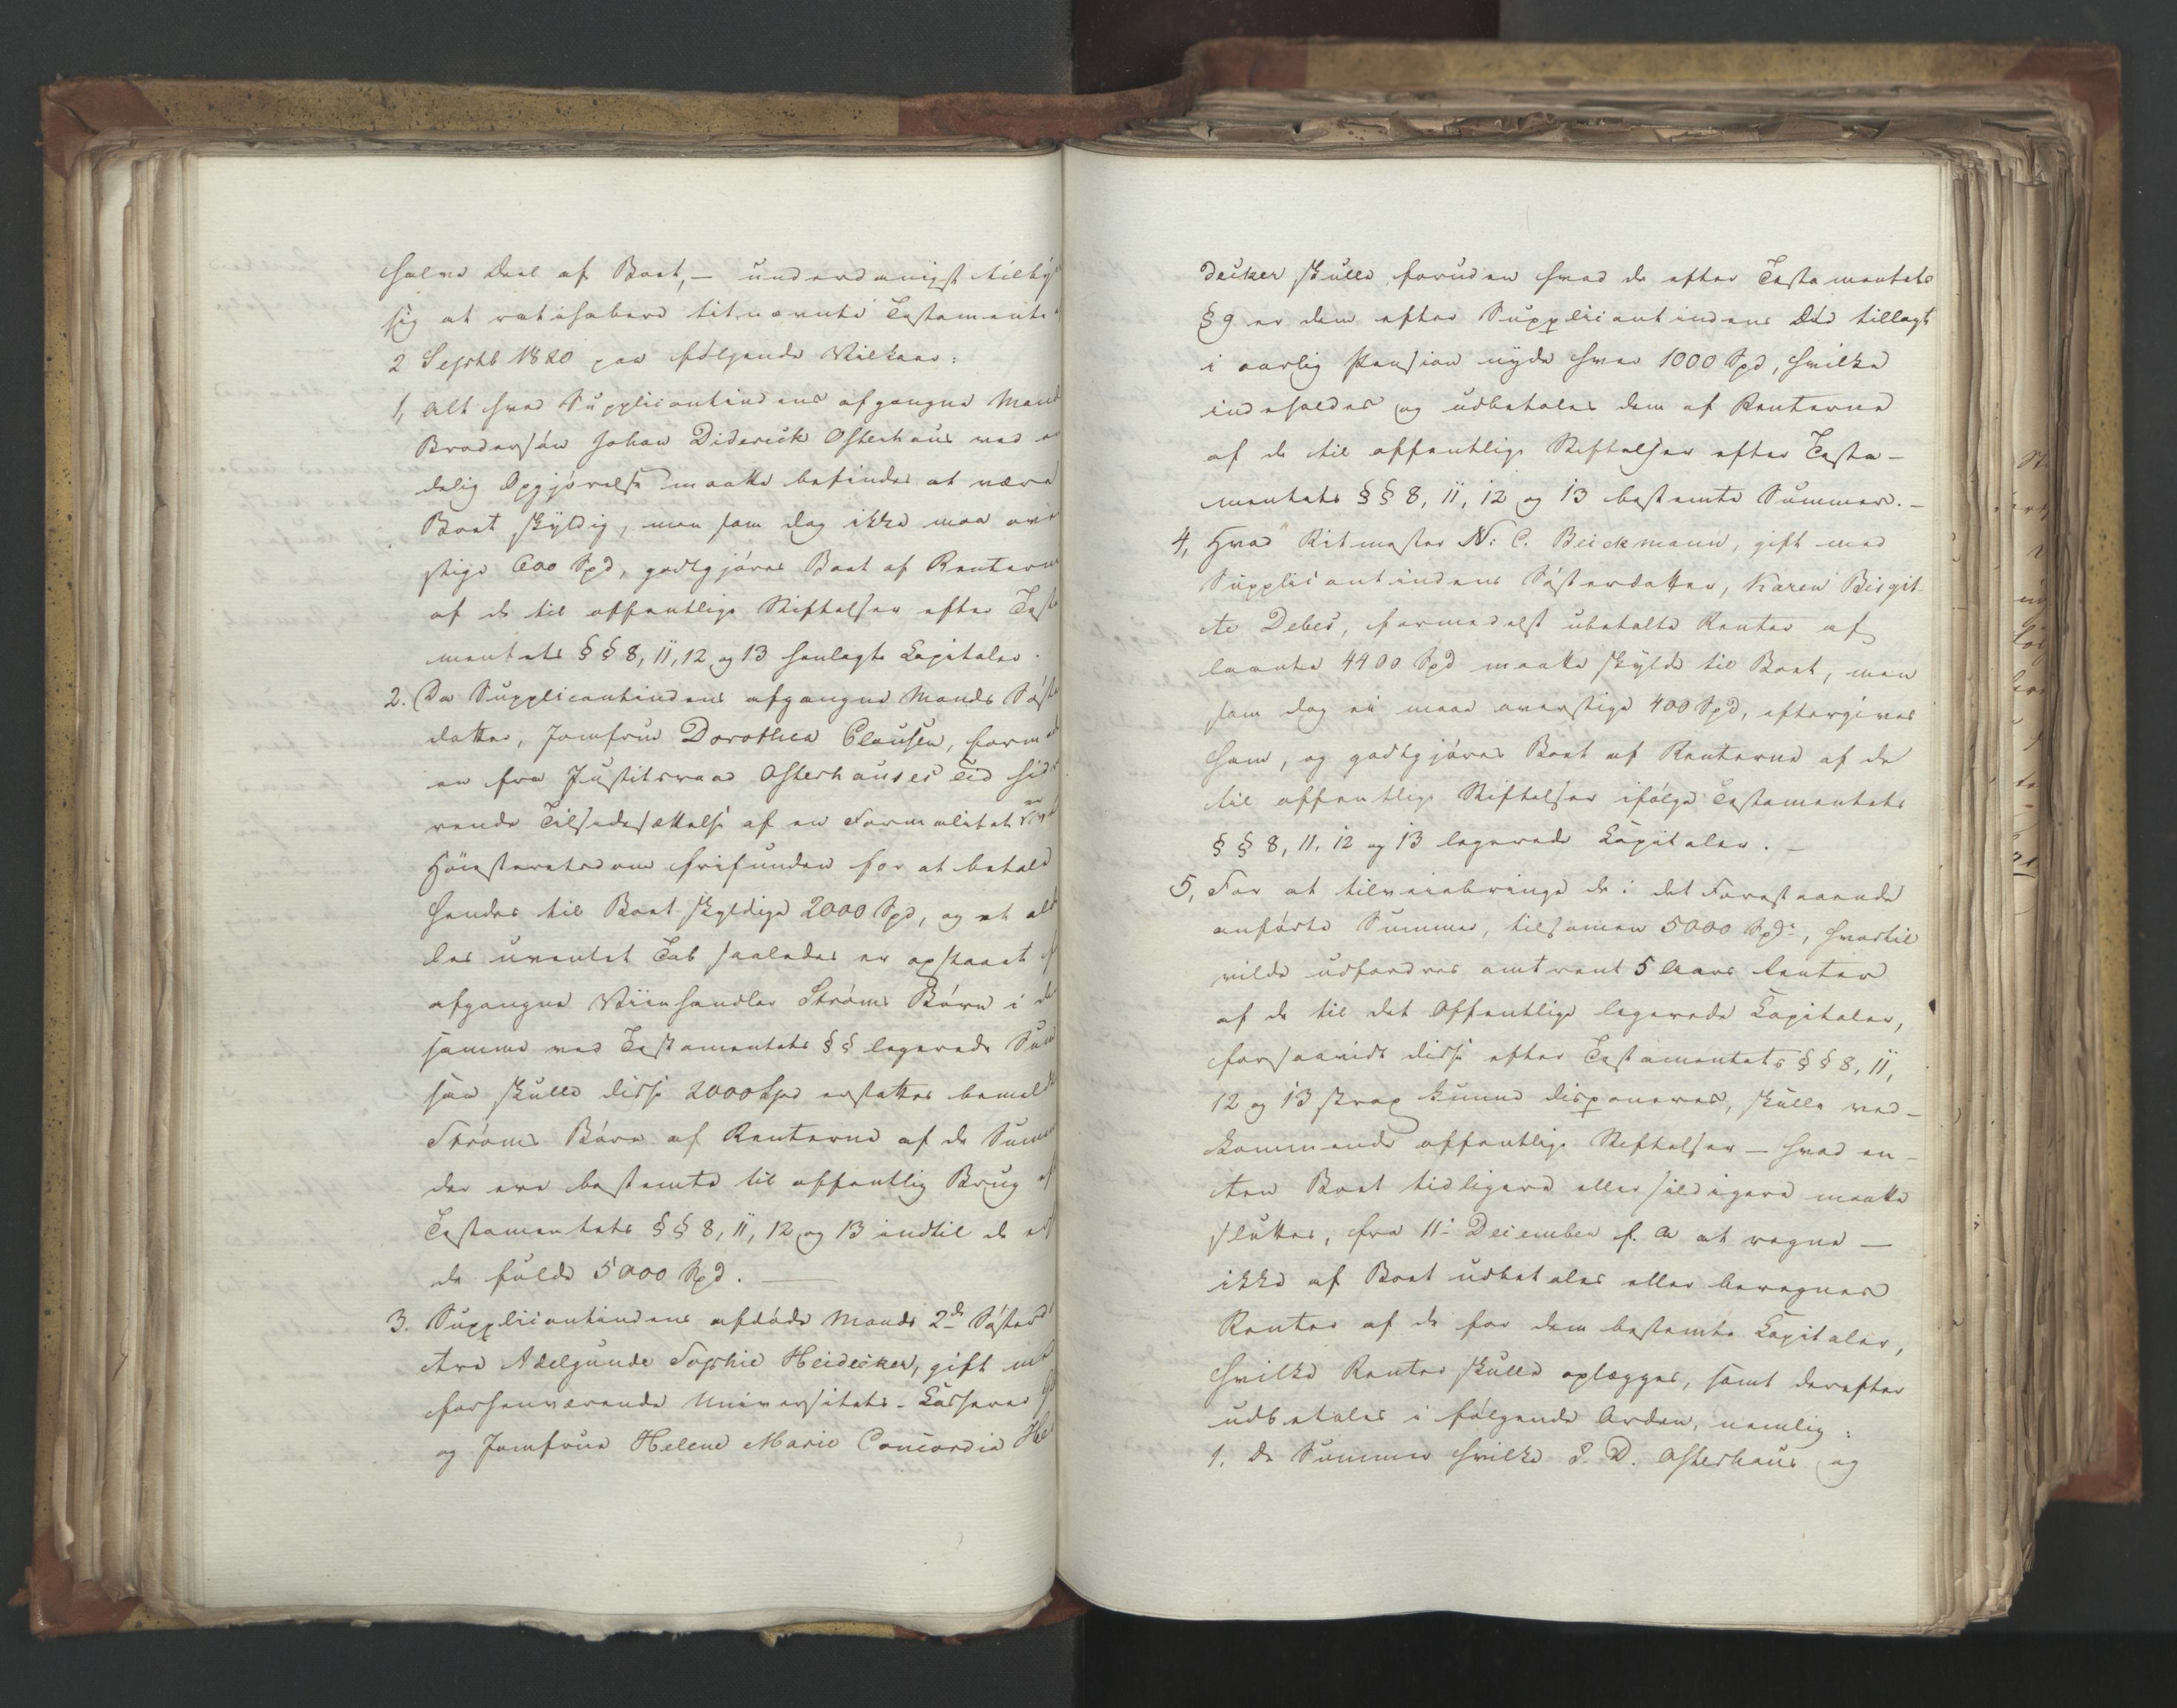 halve Deel af Boet, - underdanigst tilby
sig at ratihabere bemeldte Testamente
2 Septb 1820 paa følgende Vilkaar:
1, Alt hvad Supplicantindens afgangne Mand
Brodersøn Johan Diderick Osterhaus ved
delig Opgjørelse maatte befindes at være
Boet skyldig, men som dog ikke maa over
stige 600 Spd, godtgjøres Boet af Renterne
af de til offentlige Stiftelser efter Testa
mentets §§ 8, 11, 12 og 13 henlagte Capitaler.
2. Da Supplicantindens afgangne Mands Søster
datter, Jomfrue Dorothea Clausen, formed
en fra Justitsraad Osterhauses Tid hid
rørende Tilsidesættelse af en Formalitet ved
Høiesteretsdom frifunden for at betale
hendes til Boet skyldige 2000 Spd, og et al
les uventet Tab saaledes er opstaaet
afgangne Viinhandler Strøms Børn i de
samme ved Testamentets §§ legerede Sum
saa skulle disse 2000 Spd erstattes bemeldte
Strøms Børn af Renterne af de Summer
der ere bestemte til offentlig Brug ef
Testamentets §§ 8, 11, 12 og 13 indtil de
de fulde 5000 Spd.
3. Supplicantindens afdøde Mands 2de Søsterdø
tre Adelgunde Sophie Heidecker, gift med
forhenværende Universitets-Casserer
og Jomfrue Helene Marie Concordia Hei
decker skulle, foruden hvad de efter Testamentets
§ 9 er dem efter Supplicantindens Død tillagt
i aarlig Pension nyde hver 1000 Spd, hvilke
indeholdes og udbetales dem af Renterne
af de til offentlige Stiftelser efter Testa-
mentets §§ 8, 11, 12 og 13 bestemte Summer. -
4, Hvad Ritmester N: C. Beickmann, gift med
Supplicantindens Søsterdatter, Karen Birgit-
te Debes, formedelst ubetalte Renter af
laante 4400 Spd maatte skylde til Boet, men
som dog ei maae overstige 400 Spd, eftergives
ham, og godtgjøres Boet af Renterne af de
til offentlige Stiftelser ifølge Testamentets
§§ 8, 11, 12 og 13 legerede Capitaler. -
5, For at tilveiebringe de i det Forestaaende
anførte Summer, tilsamen 5000 Spd:, hvortil
vilde udfordres omtrent 5 Aars Renter
af de til det Offentlige legerede Capitaler,
forsaavidt disse efter Testamentets §§ 8, 11,
12 og 13 strax kunne disponeres, skulle ved-
kommende offentlige Stiftelser - hvad en-
ten Boet tidligere eller sildigere maatte
sluttes, fra 11- December f. A at regne -
ikke af Boet udbetales eller beregnes
Renter af de for dem bestemte Capitaler,
hvilke Renter skulle oplægges, samt derefter
udbetales i følgende Orden, nemlig:
1. De Summer hvilke J. D. Osterhaus og